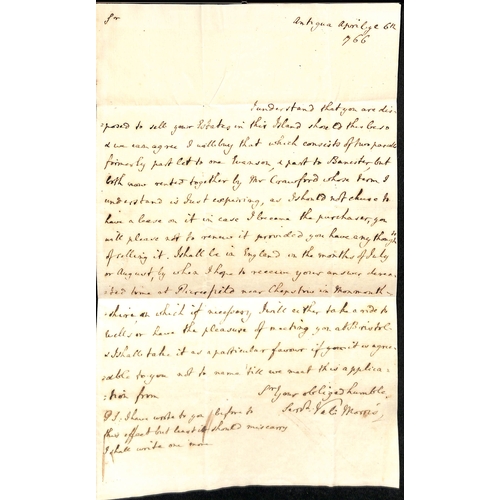 Sr
Antigua April ye 6th
1766
I understand that you are dis
posed to sell your Estates in this Island should this be so
& we can agree I will buy that which consists of two parcels
formerly part let to one Swanson, & part to Banester, but
both now rented together by Mr Crawford whose term I
understand is Just expireing, as I should not chuse to
have a lease on it in case I became the purchaser, you
will please not to renew it provided you have any thoughts
of selling it. I shall be in England in the months of July
or August, by when I hope to receive your answer
time at Piercefield near Chepstow in Monmouth-
shire on which if necessary I will either take a ride to
wells or have the pleasure of meeting you at Bristol
& I shall take it as a particular favour if your it is agre-
able to you not to name till we meet this applica-
-tion from
Sr Your obliged humble
Servt. Val: Morris
P.S. I have wrote to you before to
this effect but least it should miscarry
I shall write one more